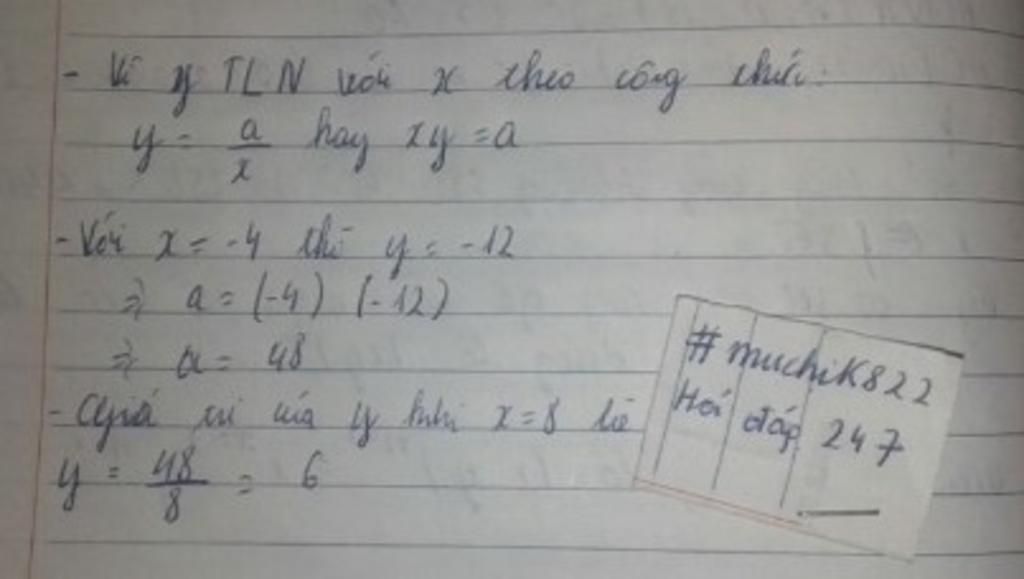 - Vì y TLN với x theo công thức:
y = a/x hay xy = a
- Với x = -4 thì y = -12
⇒ a = (-4) (-12)
⇒ a = 48
- Giá trị của y khi x = 8 là
y = 48/8 = 6
#muchiK822
Hỏi đáp 247